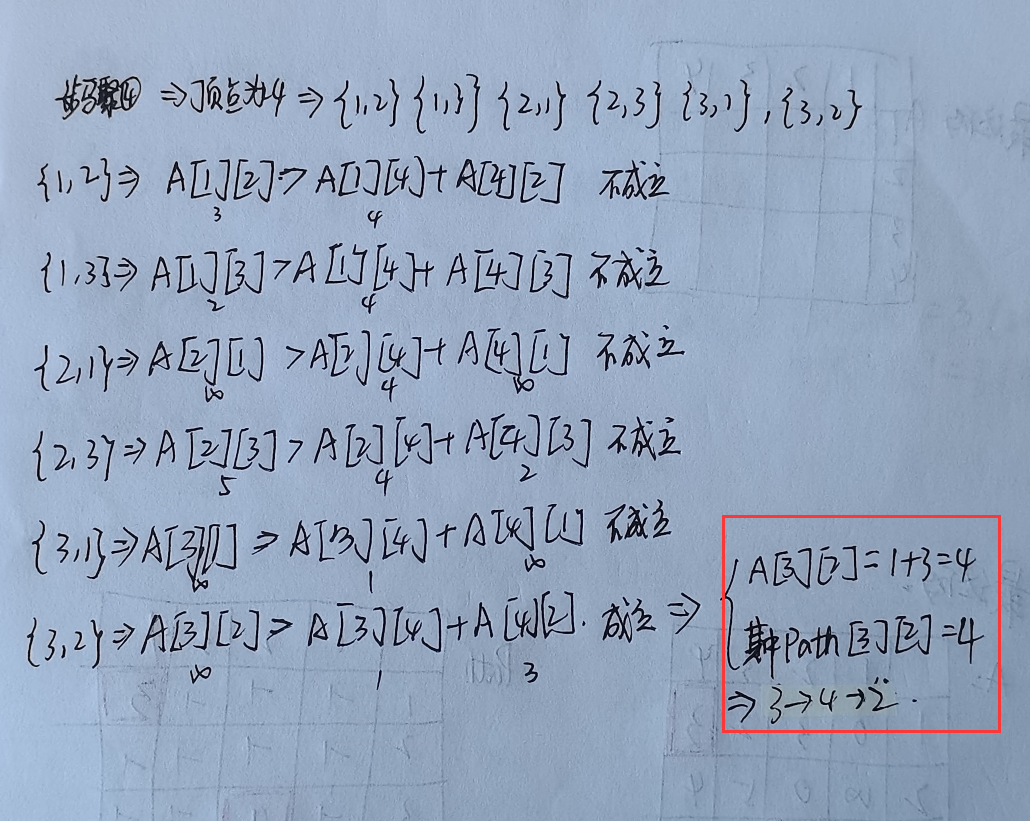 步骤④ ⇒顶点为4 ⇒ {1,2} {1,3} {2,1} {2,3} {3,1}, {3,2}
{1,2}⇒ A[1][2] > A[1][4] + A[4][2] 不成立
3 4
{1,3}⇒ A[1][3] > A[1][4] + A[4][3] 不成立
2 4
{2,1}⇒ A[2][1] > A[2][4] + A[4][1] 不成立
∞ 4 ∞
{2,3}⇒ A[2][3] > A[2][4] + A[4][3] 不成立
5 4 2
{3,1}⇒ A[3][1] > A[3][4] + A[4][1] 不成立
∞ 1 ∞
{3,2}⇒ A[3][2] > A[3][4] + A[4][2]. 成立 ⇒
∞ 1 3
{ A[3][2] = 1+3 = 4
其中Path[3][2] = 4
⇒ 3→4→2.